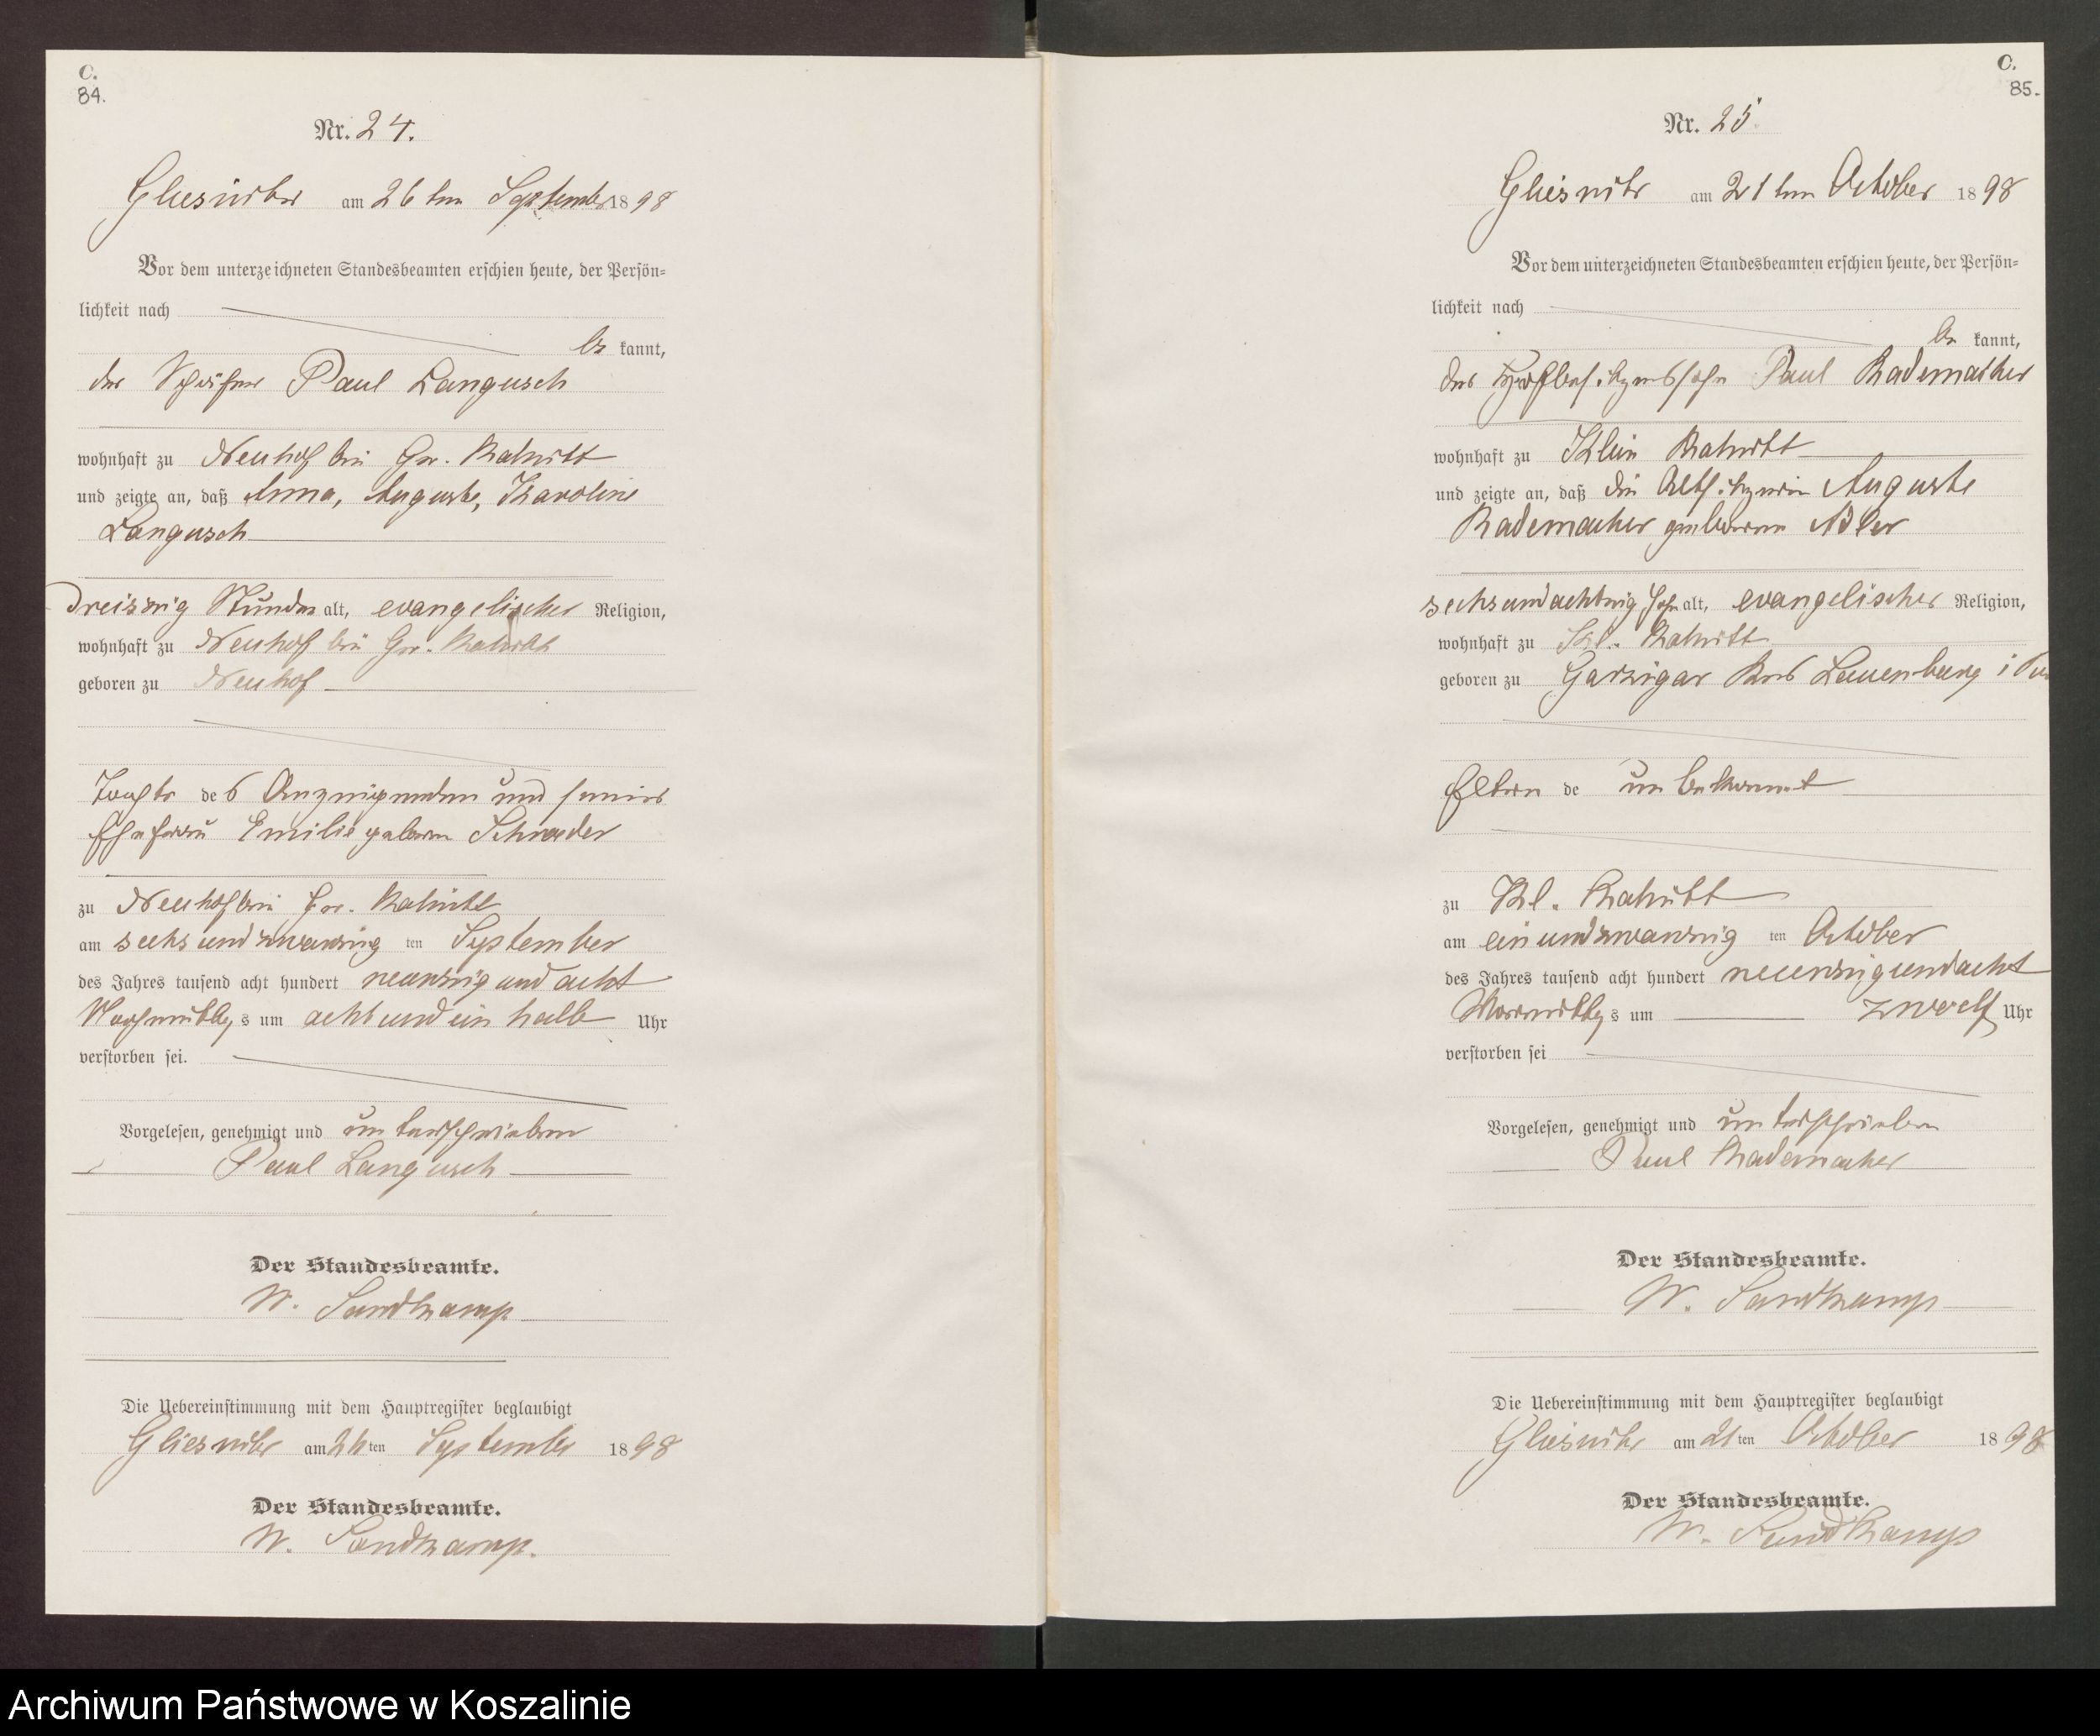 C.
84.
Nr. 24.
Gliesnitz am 26 ten September 1898
Vor dem unterzeichneten Standesbeamten erschien heute, der Persön-
lichkeit nach
be kannt,
der Schäfer Paul Langusch
wohnhaft zu Neuhof bei Gr.
und zeigte an, daß Anna, Auguste, Karoline
Langusch
dreiszig Stunden alt, evangelischer Religion,
wohnhaft zu Neuhof bei Gr.
geboren zu Neuhof
Tochter des Anzeigenden und seiner
Ehefrau Emilie geboren Schrader
zu Neuhof bei Gr.
am sechsundzwanzig ten September
des Jahres tausend acht hundert neunzig und acht
Vormittags um acht und ein halb Uhr
verstorben sei.
Vorgelesen, genehmigt und unterschrieben
Paul Langusch
Der Standesbeamte.
W. Sandkamp
Die Uebereinstimmung mit dem Hauptregister beglaubigt
Gliesnitz am 26 ten September 1898
Der Standesbeamte.
W. Sandkamp.
C.
85.
Nr. 25.
Gliesnitz am 21 ten October 1898
Vor dem unterzeichneten Standesbeamten erschien heute, der Persön-
lichkeit nach
be kannt,
der Hofbesitzerssohn Paul Rademacher
wohnhaft zu Klein
und zeigte an, daß die Altsitzerin Auguste
Rademacher geborene Adler
sechsundachtzig Jahr alt, evangelischer Religion,
wohnhaft zu Kl.
geboren zu Garzigar Kreis Lauenburg i
Eltern de unbekannt
zu Kl.
am einundzwanzig ten October
des Jahres tausend acht hundert neunzigundacht
Vormittags um zwoelf Uhr
verstorben sei
Vorgelesen, genehmigt und unterschrieben
Paul Rademacher
Der Standesbeamte.
W. Sandkamp
Die Uebereinstimmung mit dem Hauptregister beglaubigt
Gliesnitz am 21 ten October 1898
Der Standesbeamte.
W. Sandkamp
Archiwum Państwowe w Koszalinie